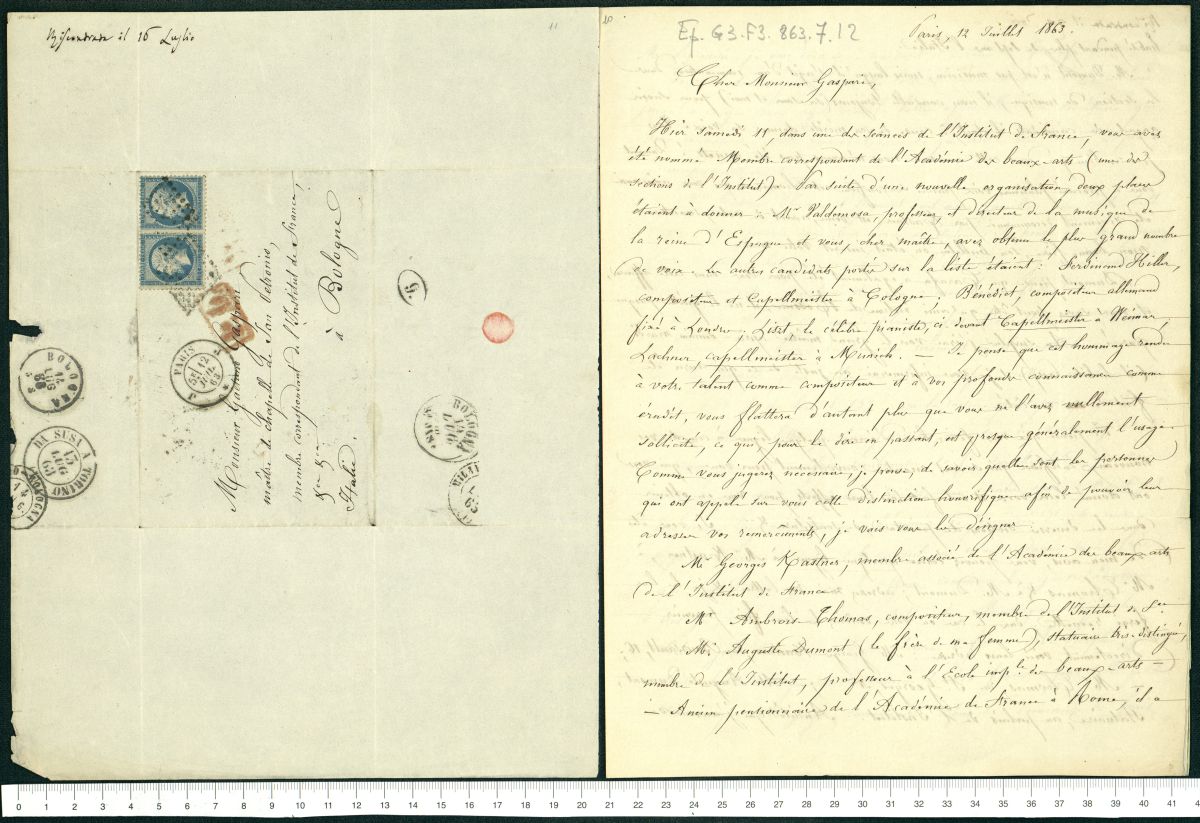 Risposta il 16 Luglio
11
Monsieur Gaetano Gaspari
maître de chapelle de San Pétronio,
membre correspondant de l'Institut de France,
&ca &ca
à Bologne
Italie.
PARIS
12
JUIL
63
BOLOGNA
DA SUSA A TORINO
BOLOGNA
BOLOGNA
MILA
63
10
Ep. G3. F3. 863.7.12
Paris, 12 Juillet 1863.
Cher Monsieur Gaspari,
Hier samedi 11, dans une des séances de l'Institut de France, vous avez
été nommé Membre correspondant de l'Académie des beaux-arts (une des
sections de l'Institut). Par suite d'une nouvelle organisation, deux places
étaient à donner : Mr Valdemosa, professeur, et directeur de la musique de
la reine d'Espagne et vous, cher maître, avez obtenu le plus grand nombre
de voix. Les autres candidats portés sur la liste étaient : Ferdinand Hiller,
compositeur et Capellmeister à Cologne ; Bénédict, compositeur allemand
fixé à Londres, Liszt le célèbre pianiste, ci devant Capellmeister à Weimar,
Lachner, capellmeister à Munich — Je pense que cet hommage rendu
à votre talent comme compositeur et à vos profondes connaissances comme
érudit, vous flattera d'autant plus que vous ne l'avez nullement
sollicité, ce qui, pour le dire en passant, est presque généralement l'usage.
Comme vous jugerez nécessaire, je pense, de savoir quelles sont les personnes
qui ont appelé sur vous cette distinction honorifique afin de pouvoir leur
adresser vos remerciments, je vais vous les désigner :
Mr Georges Kastner, membre associé de l'Académie des beaux-arts
de l'Institut de France
Mr Ambroise Thomas, compositeur, membre de l'Institut de Fce
Mr Auguste Dumont (le frère de ma femme), statuaire très distingué,
membre de l'Institut, professeur à l'Ecole imple des beaux-arts —
— Ancien pensionnaire de l'Académie de France à Rome, il a